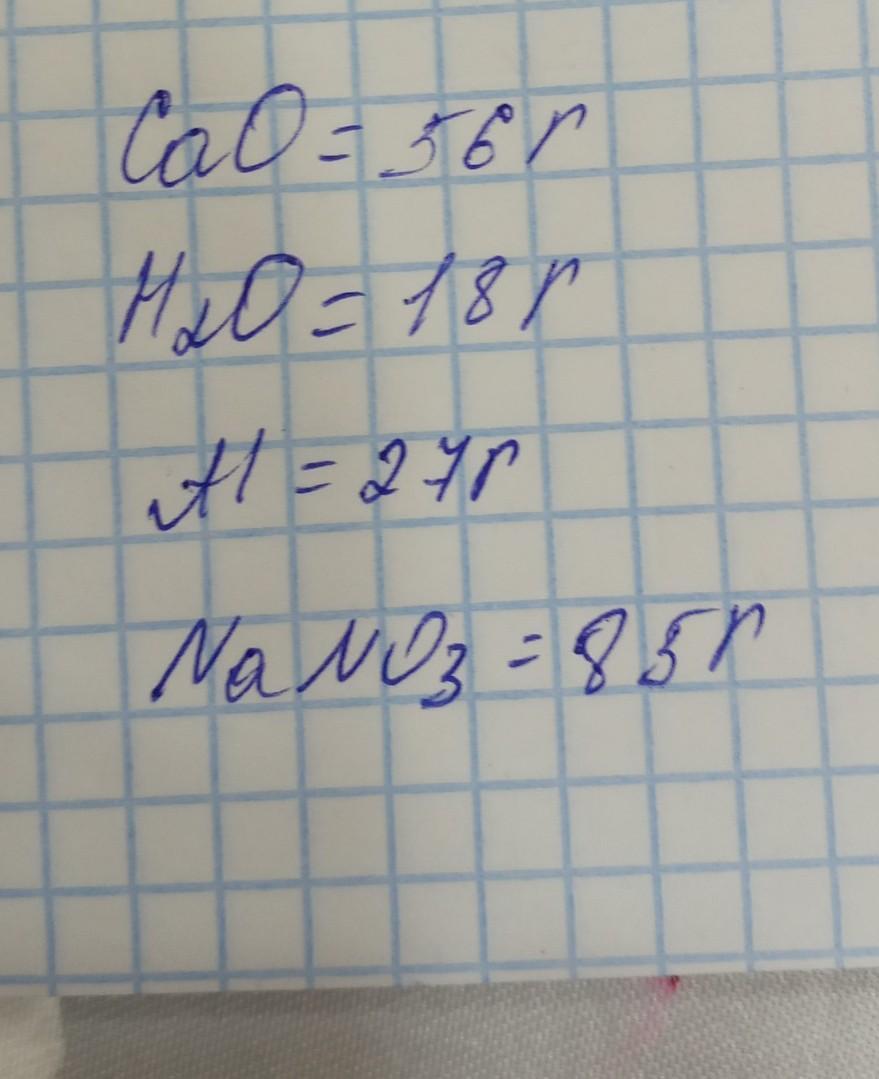 CaO = 56 г
H₂O = 18 г
Al = 27 г
NaNO₃ = 85 г